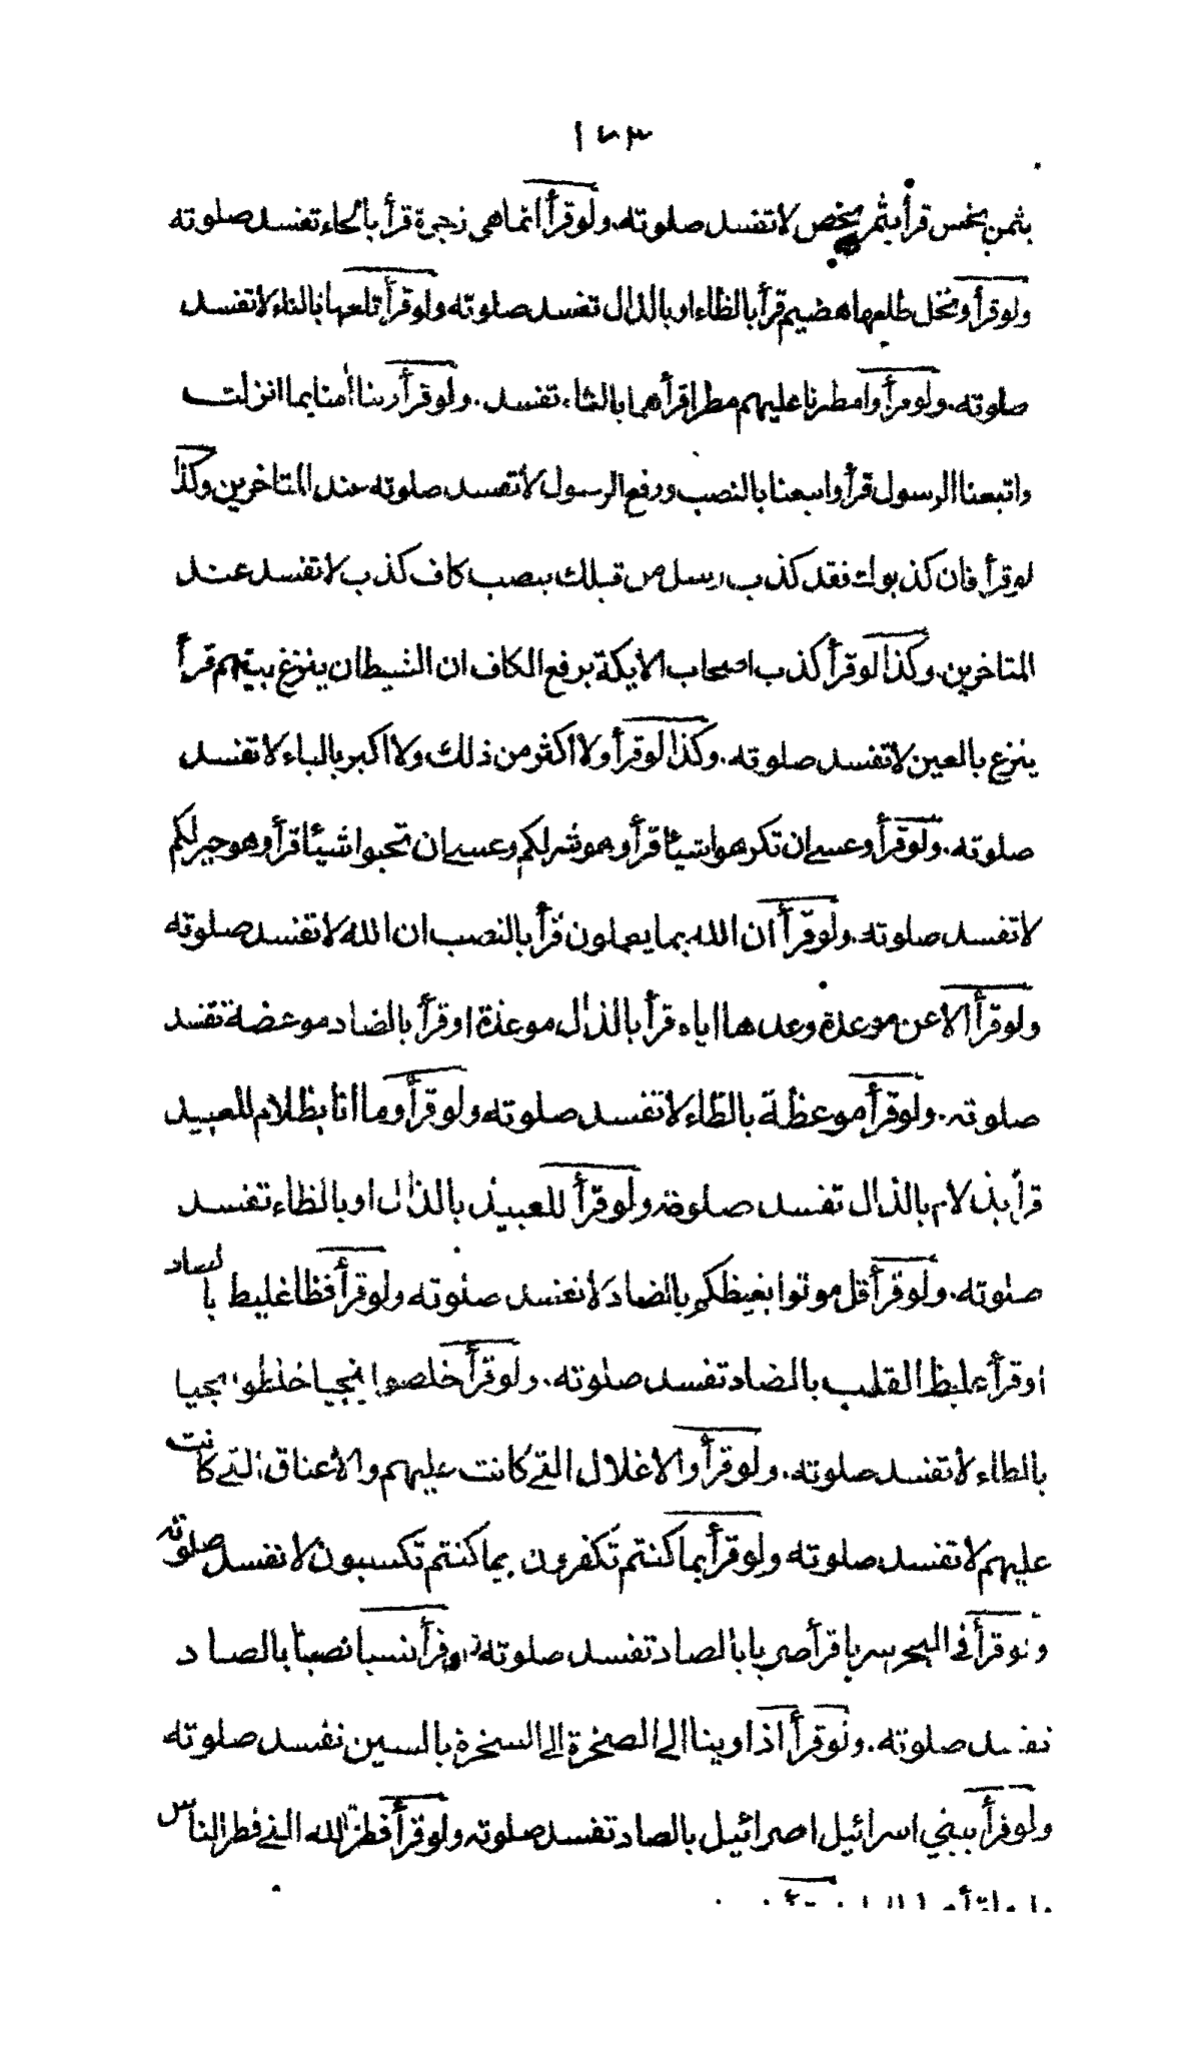 ١٧٣
بثمن بخس قرأ بثمر بخص لا تفسد صلوته. ولو قرأ انما هي زجرة قرأ بالحاء تفسد صلوته
ولو قرأ ونخل طلعها هضيم قرأ بالظاء او بالذال تفسد صلوته ولو قرأ تلعها بالتاء لا تفسد
صلوته. ولو قرأ وامطرنا عليهم مطرا قرأهما بالتاء تفسد. ولو قرأ ربنا أمنا بما انزلت
واتبعنا الرسول قرأ واتبعنا بالنصب ورفع الرسول لا تفسد صلوته عند المتاخرين وكذا
لو قرأ فان كذبوك فقد كذب رسل من قبلك بنصب كاف كذب لا تفسد عند
المتاخرين. وكذا لو قرأ كذب اصحاب الايكة برفع الكاف ان الشيطان ينزغ بينهم قرأ
ينزع بالعين لا تفسد صلوته. وكذا لو قرأ ولا اكثر من ذلك ولا اكبر بالباء لا تفسد
صلوته. ولو قرأ وعسى ان تكرهوا شيئا قرأ وهو شر لكم وعسى ان تحبوا شيئا قرأ وهو خير لكم
لا تفسد صلوته. ولو قرأ ان الله بما يعملون قرأ بالنصب ان الله لا تفسد صلوته
ولو قرأ الا عن موعدة وعدها اياه قرأ بالذال موعذة او قرأ بالضاد موعضة تفسد
صلوته. ولو قرأ موعظة بالظاء لا تفسد صلوته ولو قرأ وما انا بظلام للعبيد
قرأ بذلام بالذال تفسد صلوته ولو قرأ للعبيذ بالذال او بالظاء تفسد
صلوته. ولو قرأ قل موتوا بغيظكم بالضاد لا تفسد صلوته ولو قرأ فظا غليظ بالضاد
او قرأ غليظ القلب بالضاد تفسد صلوته. ولو قرأ خلصوا نجيا خلطوا نجيا
بالطاء لا تفسد صلوته. ولو قرأ والاغلال التي كانت عليهم والاعناق التي كانت
عليهم لا تفسد صلوته ولو قرأ بما كنتم تكفرون بما كنتم تكسبون لا تفسد صلوته
ولو قرأ في البحر سربا قرأ صربا بالصاد تفسد صلوته ولو قرأ نسبا نصبا بالصاد
تفسد صلوته. ولو قرأ اذ اوينا الى الصخرة الى السخرة بالسين تفسد صلوته
ولو قرأ ببني اسرائيل اصرائيل بالصاد تفسد صلوته ولو قرأ فطرة الله التي فطر الناس